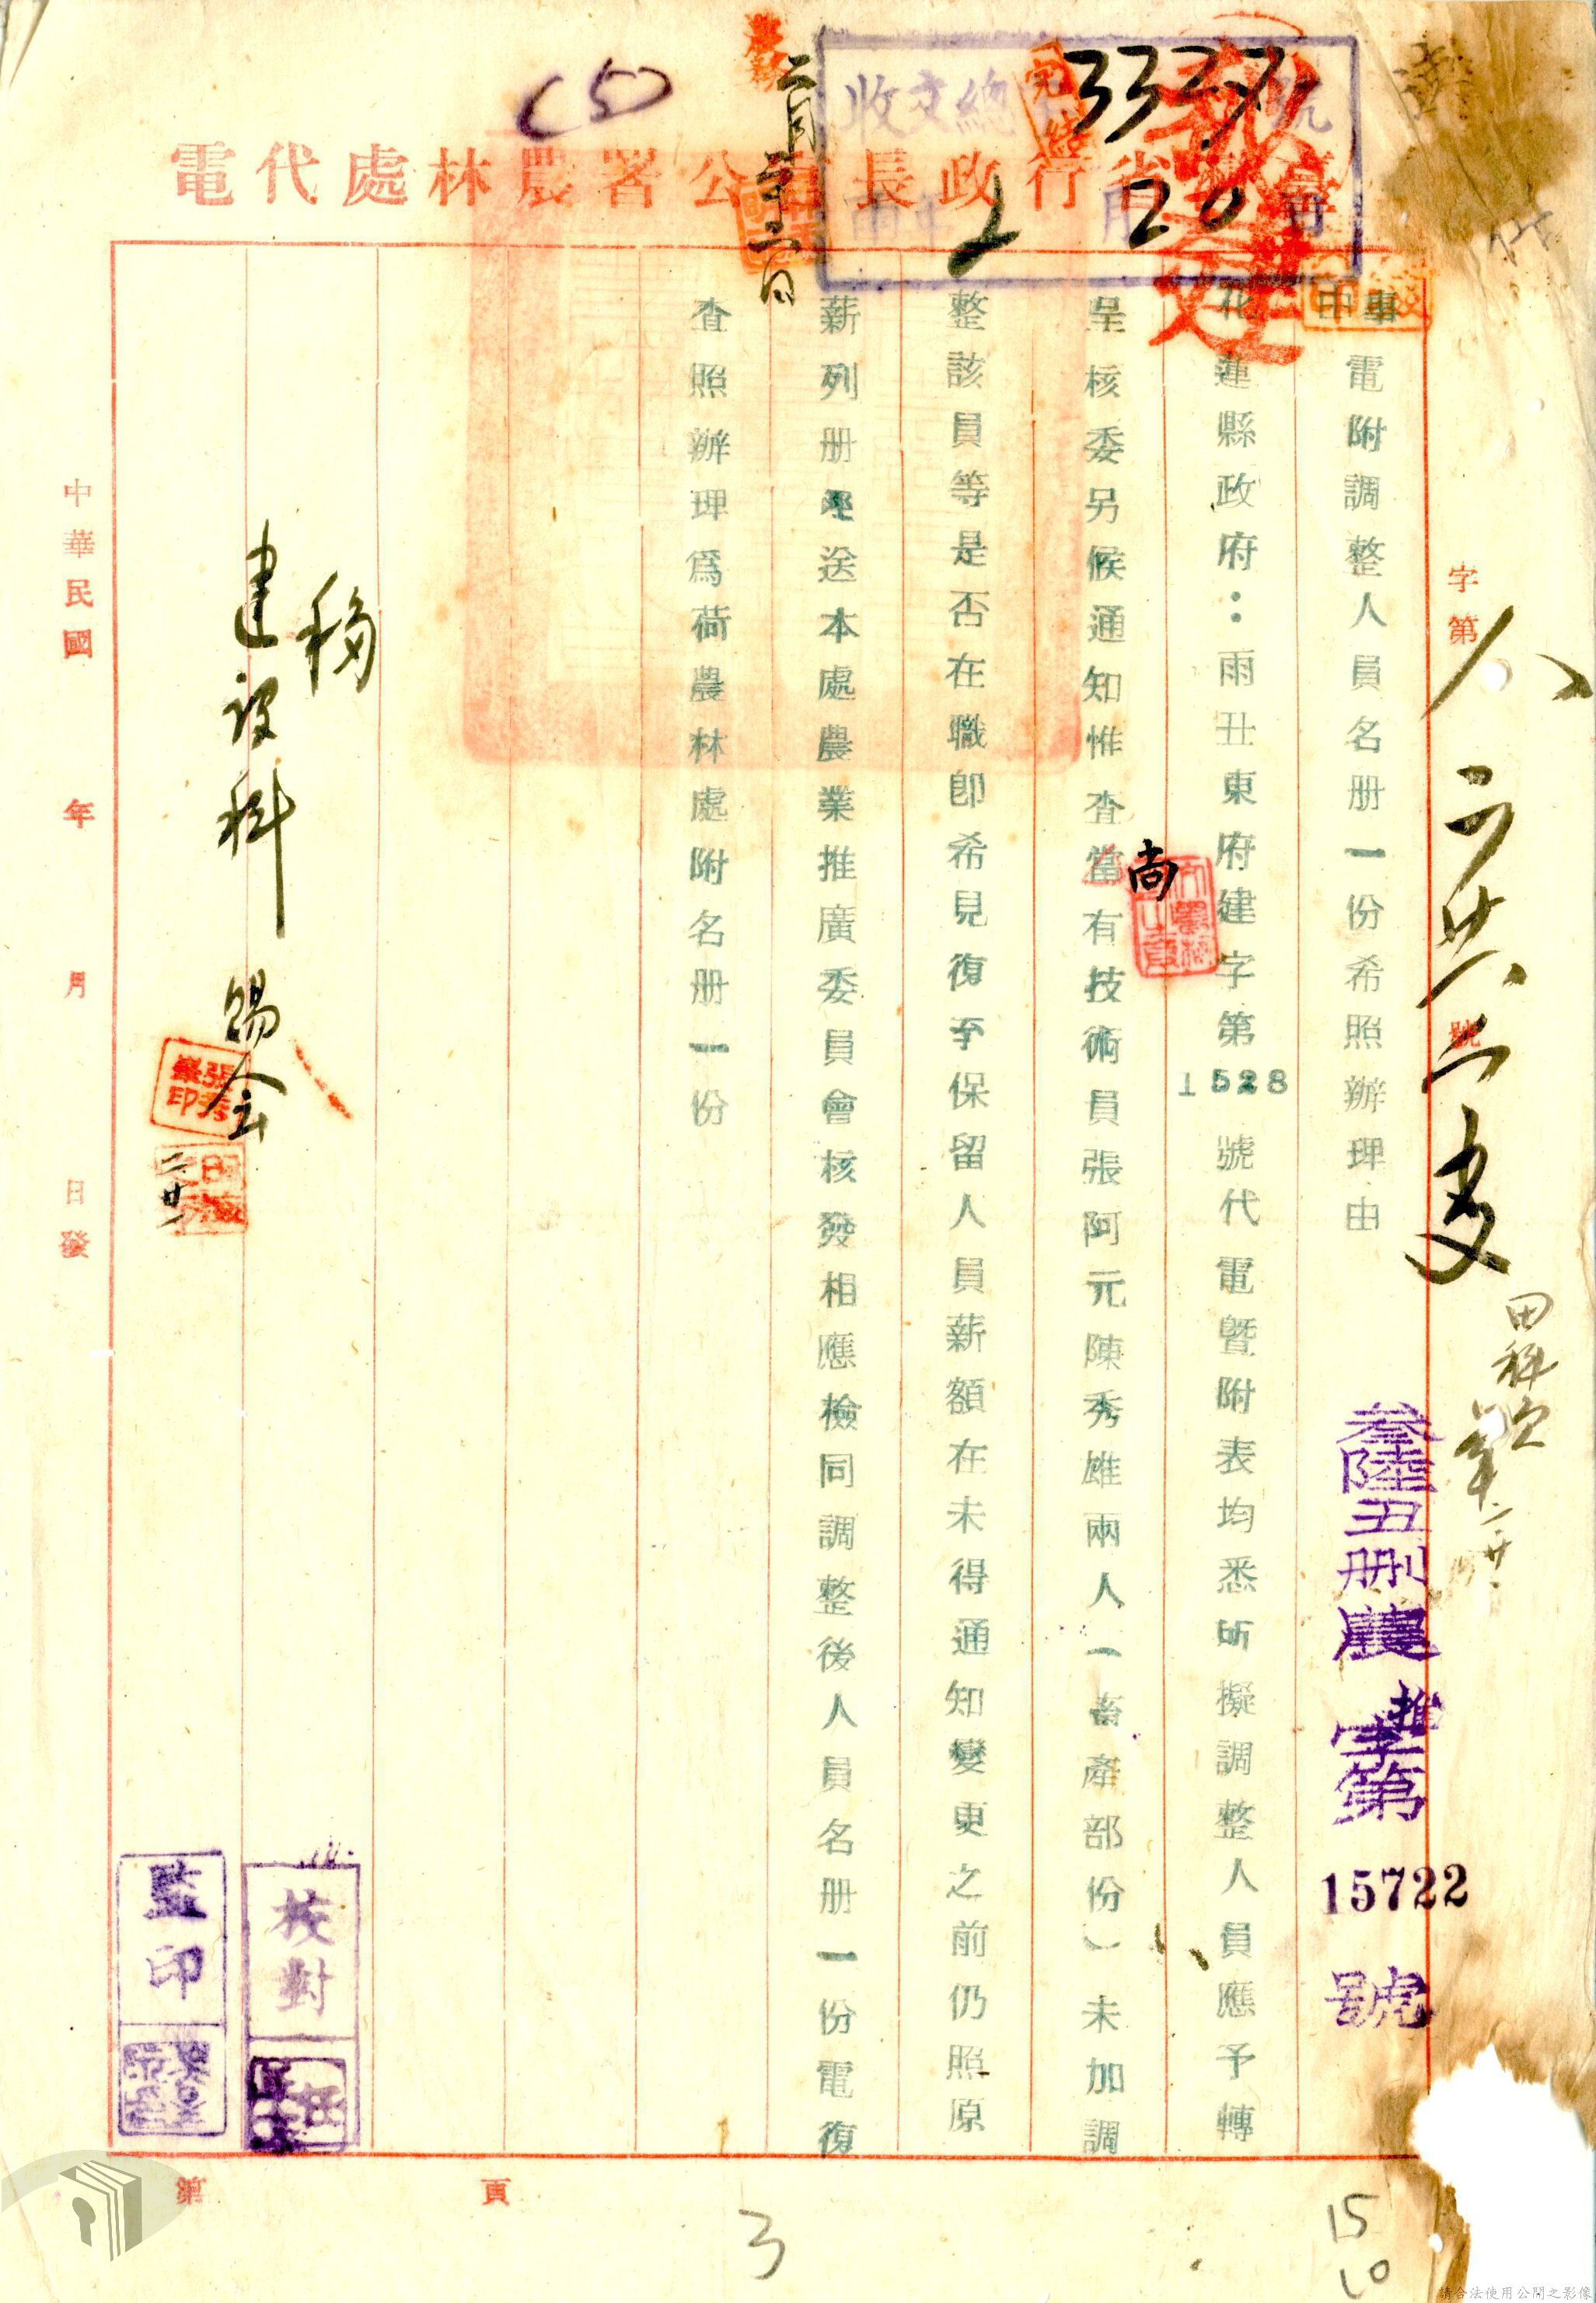 (5)
收文總 號
33271
2 20
完結
二月廿二日
臺 省行政長官公署農林處代電
字第 號
人 二 廿六 二 建
田科
叁陸丑刪農推字第 15722 號
事由
電附調整人員名册一份希照辦理由
花蓮縣政府:雨丑東府建字第1528號代電暨附表均悉所擬調整人員應予轉
呈核委另候通知惟查當有技術員張阿元陳秀雄兩人(畜產部份)未加調
尚
整該員等是否在職卽希見復至保留人員薪額在未得通知變更之前仍照原
薪列册逕送本處農業推廣委員會核發相應檢同調整後人員名册一份電復
查照辦理爲荷農林處附名册一份
移
建設科 賜会
張秀華印
二廿一
校對
監印
中華民國 年 月 日發
第 頁
3
15
10
請合法使用公開之影像